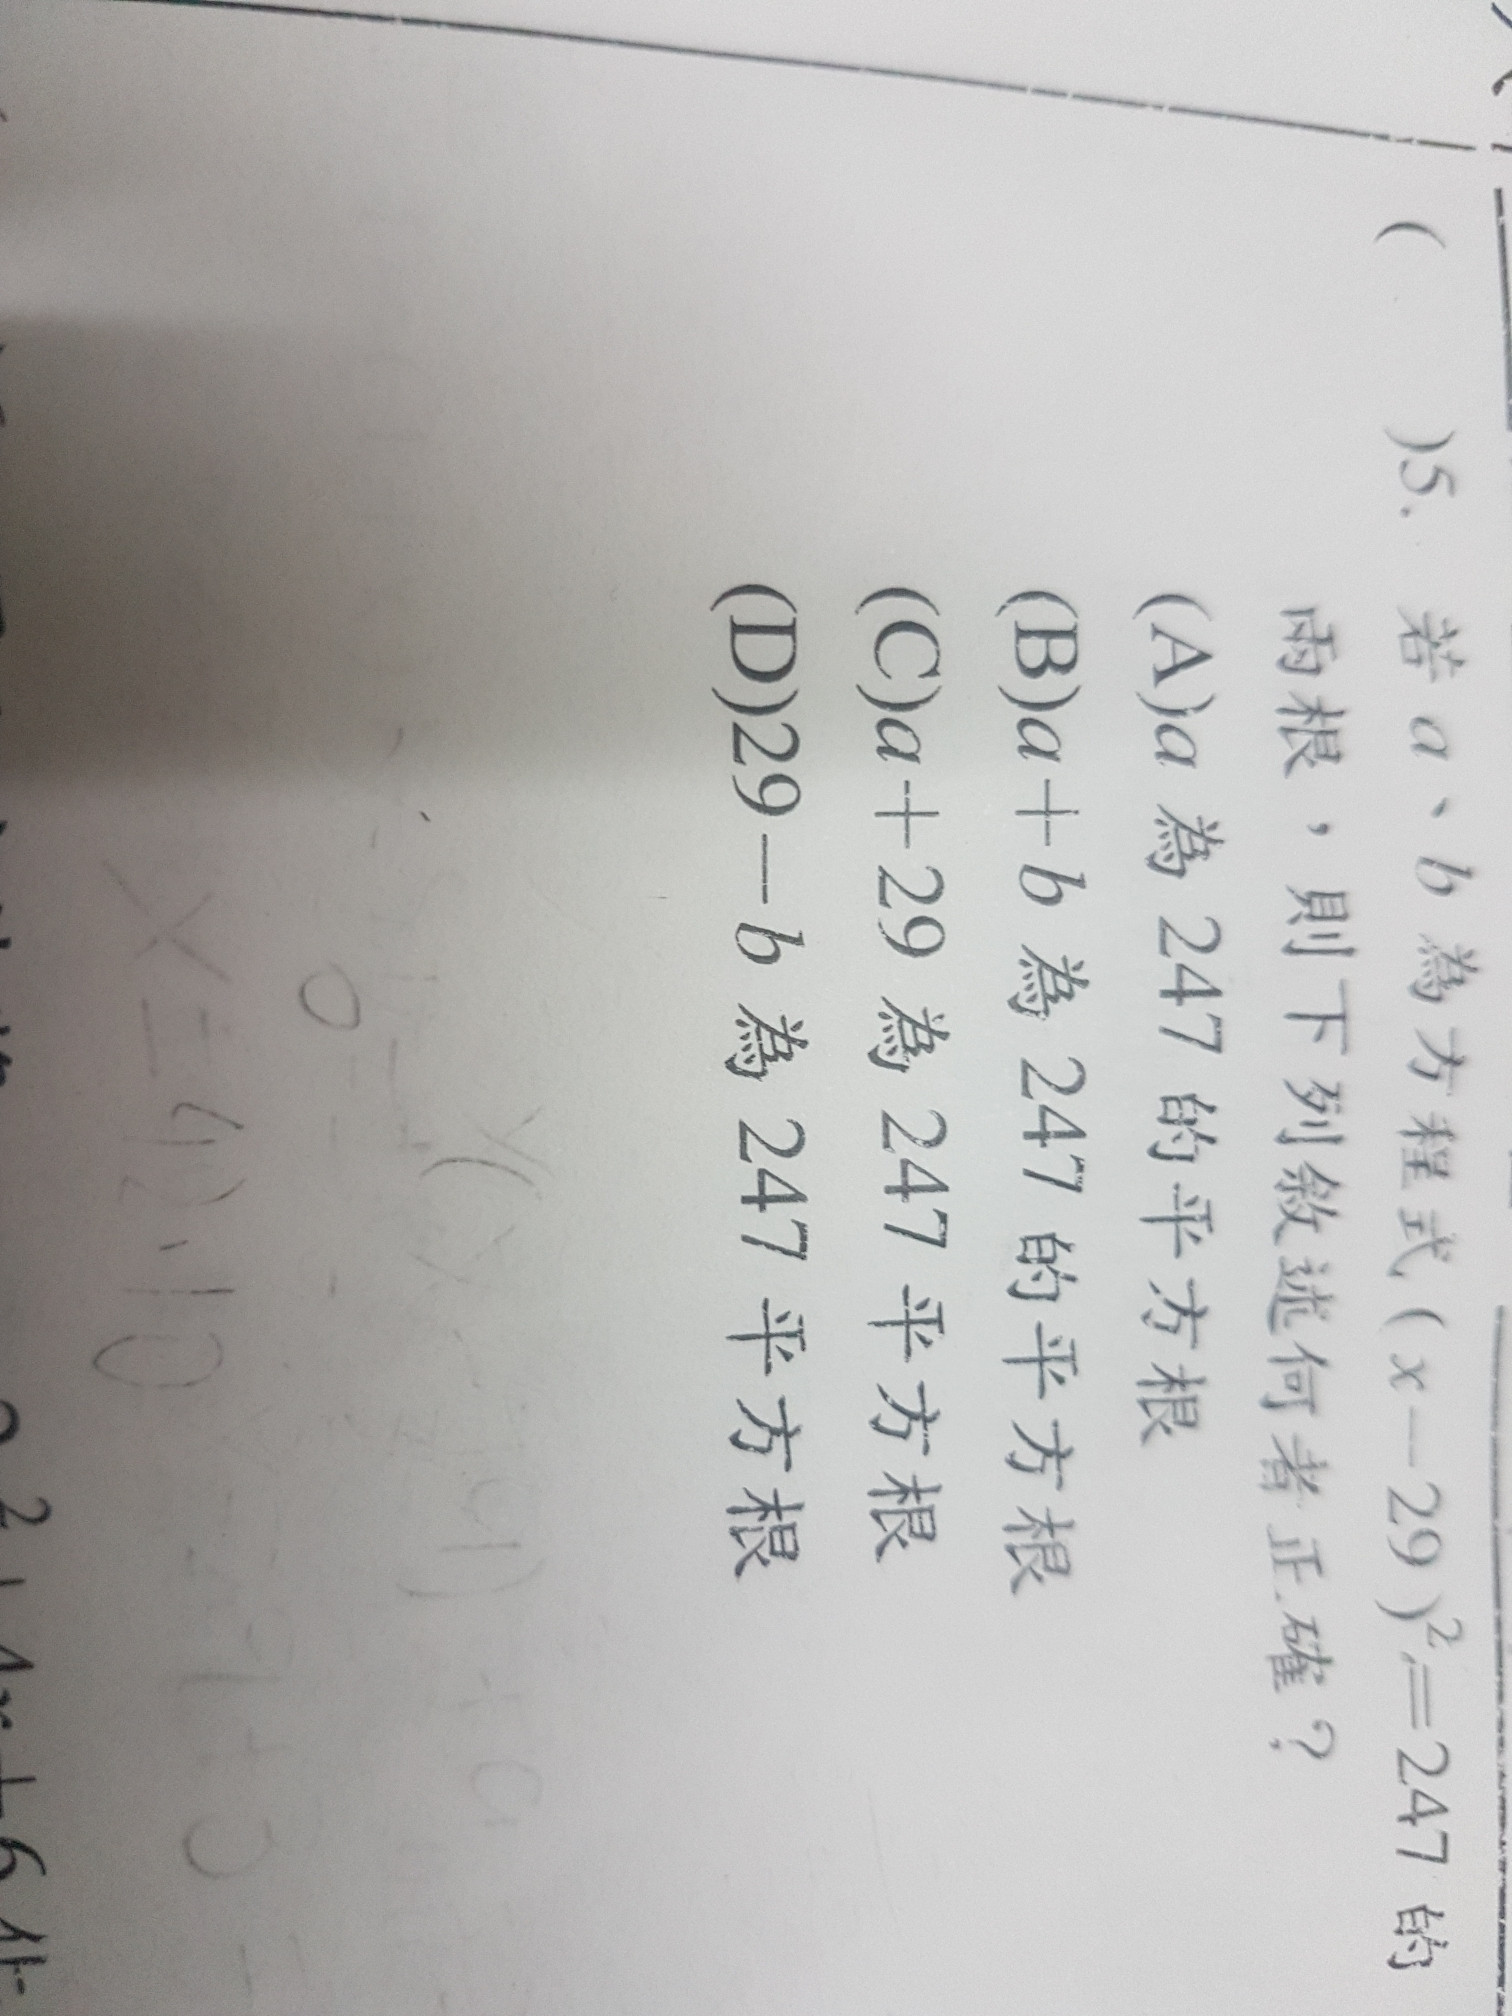 ( )5. 若 a、b 為方程式(x-29)²=247 的
兩根，則下列敘述何者正確？
(A)a 為 247 的平方根
(B)a+b 為 247 的平方根
(C)a+29 為 247 平方根
(D)29-b 為 247 平方根